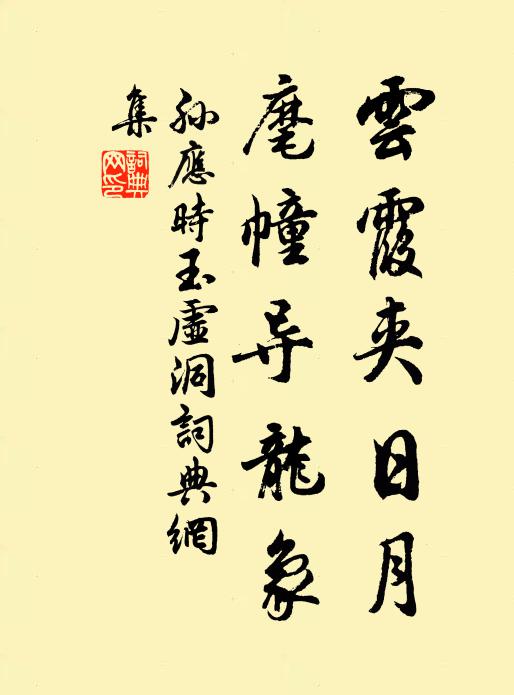 雲霞夹日月
麾幢导龍象
孙應時玉虛洞詞典網
集
詞典網印